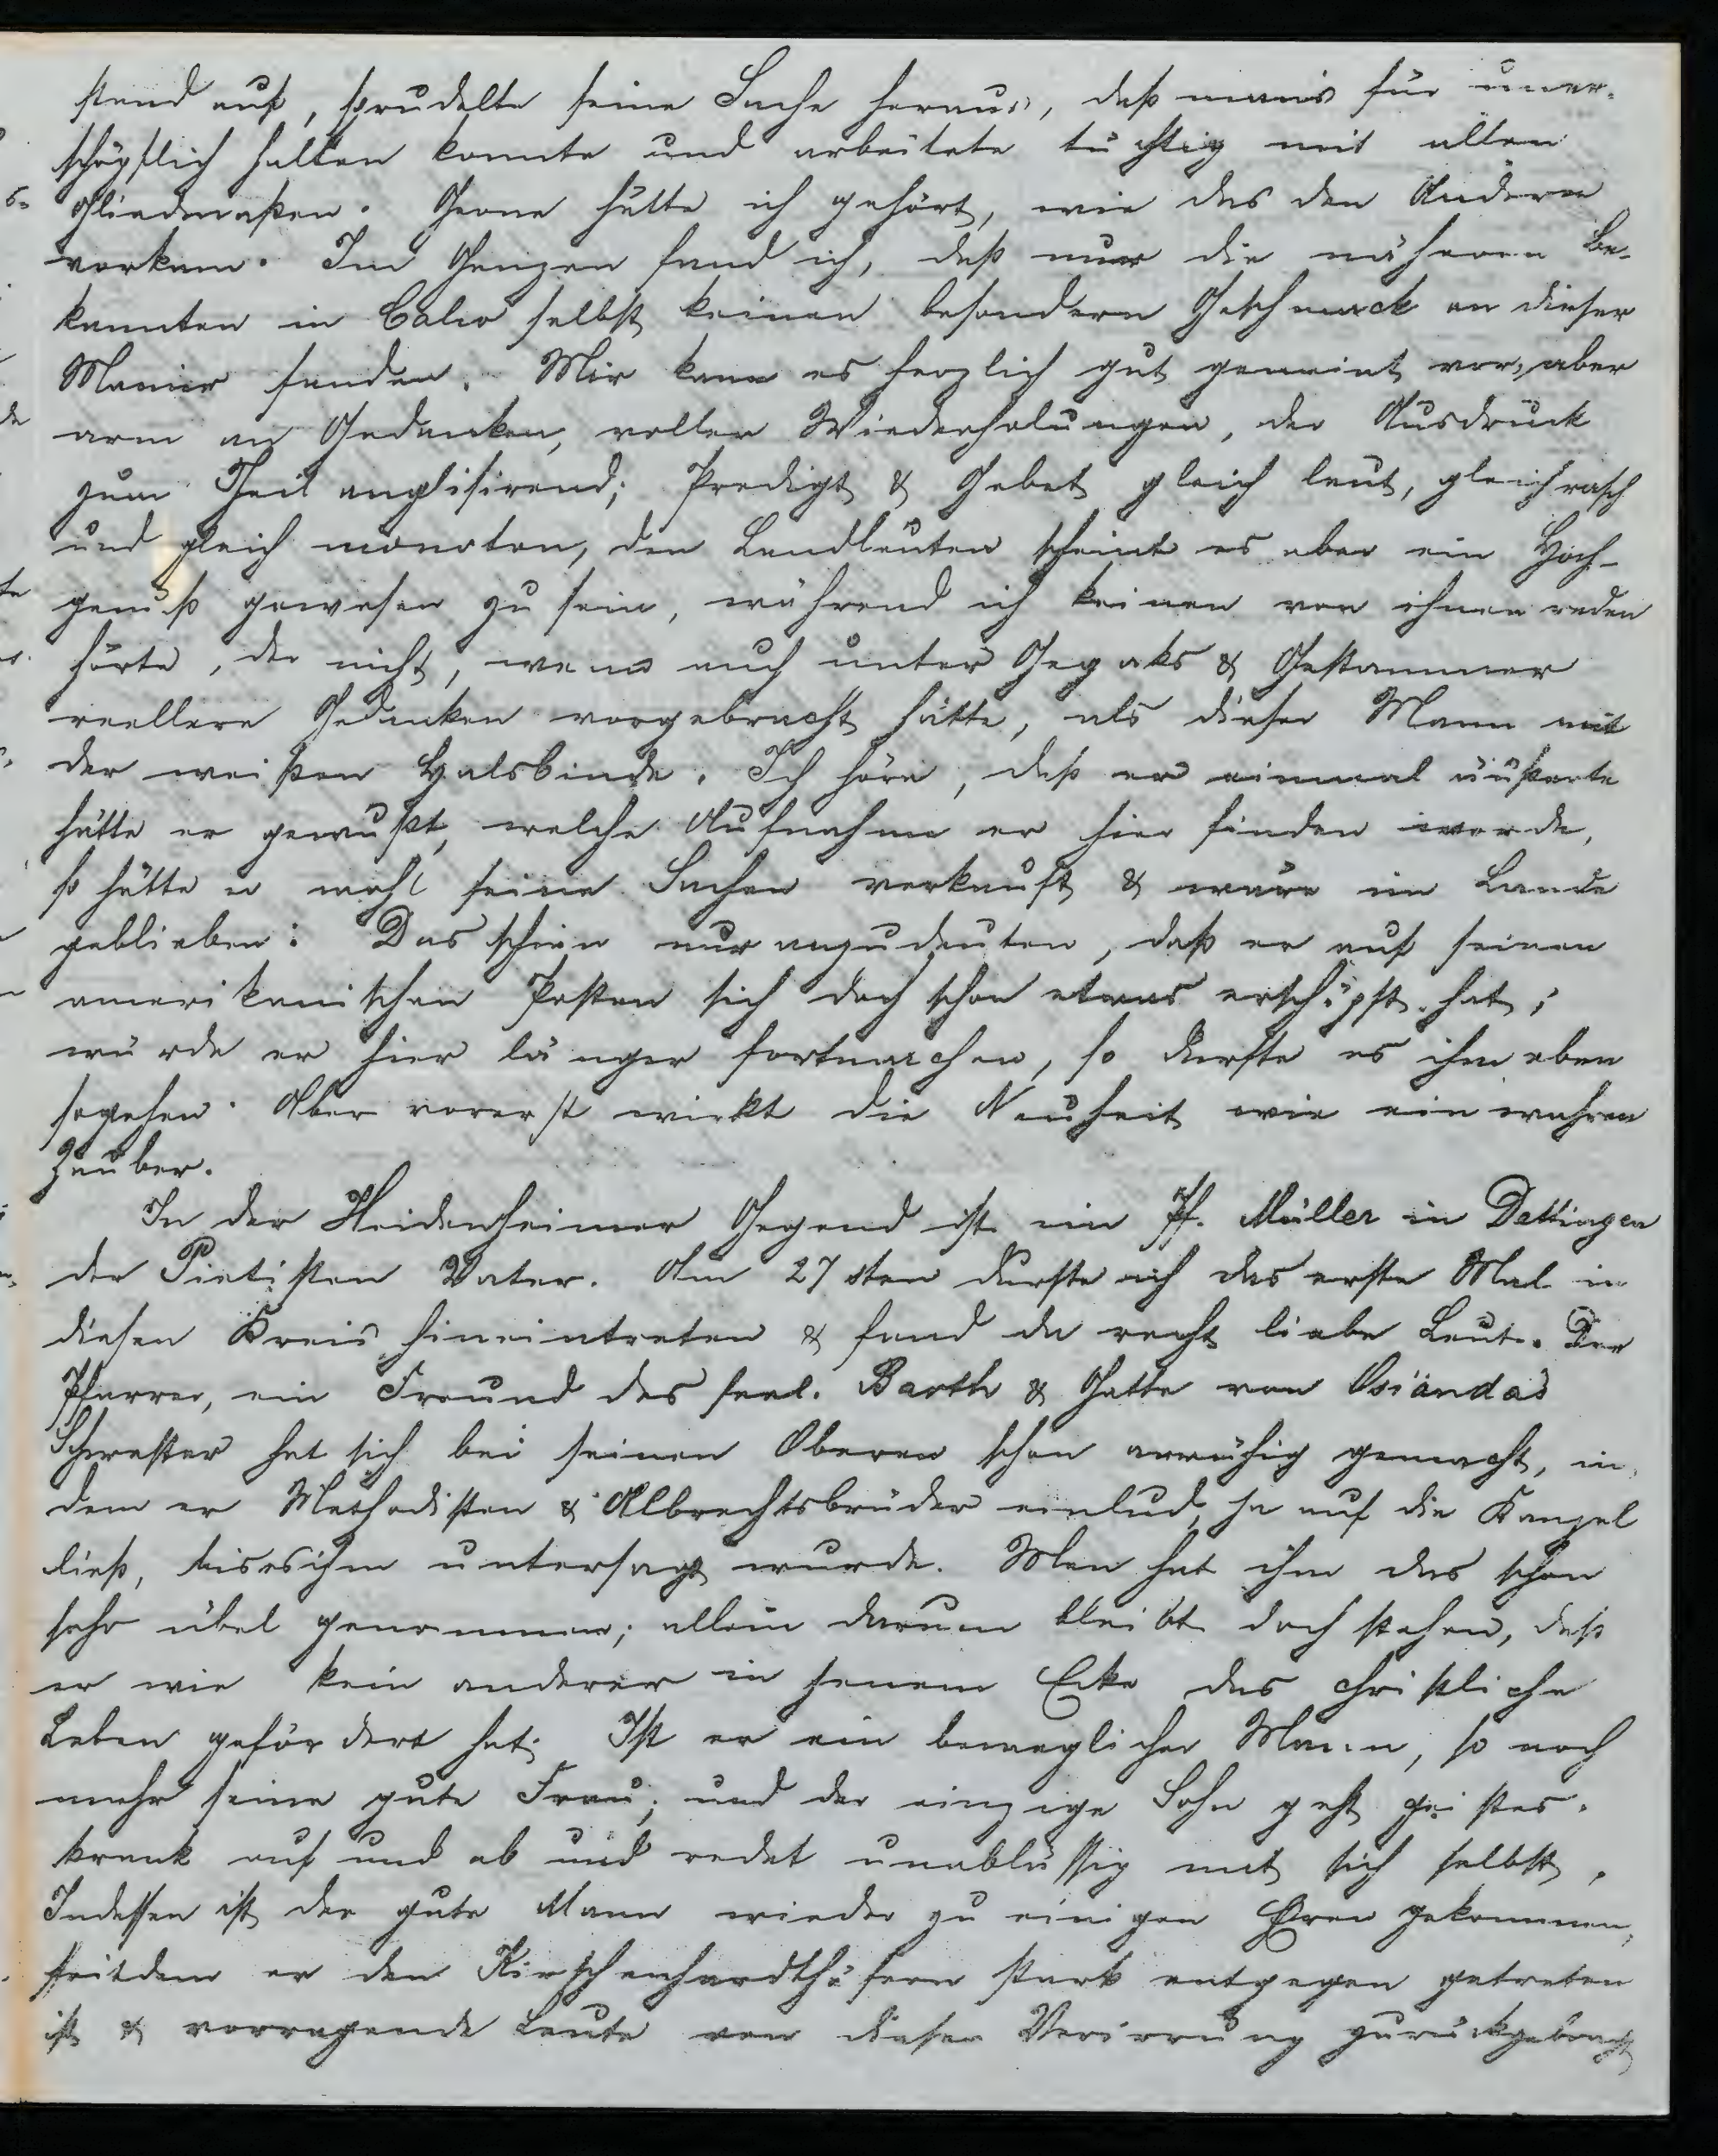 stand auf, sprudelte seine Sache heraus, daß mans für uner-
schöpflich halten konnte und arbeitete tüchtig mit allen
Gliedmaßen. Gerne hätte ich gehört, wie das den Andern
vorkam. Im Ganzen fand ich, daß nur die näheren Be-
kannten in Calw selbst keinen besondern Geschmack an dieser
Manier fanden. Mir kam es herzlich gut gemeint vor, aber
arm an Gedanken, voller Wiederholungen, der Ausdruck
zum Theil anglisirend; Predigt & Gebet gleich laut, gleich rasch
und gleich monoton, den Landleuten scheint es aber ein Hoch-
genuß gewesen zu sein, während ich keinen von ihnen reden
hörte, der nicht, wenn auch unter Gegaks & Gestammer
reellere Gedanken vorgebracht hätte, als dieser Mann mit
der weißen Halsbinde. Ich höre, daß er einmal äußerte
hätte er gewußt, welche Aufnahme er hier finden werde,
so hätte er wohl seine Sachen verkauft & wäre im Lande
geblieben: Das schien nur anzudeuten, daß er auf seinen
amerikanischen Posten sich doch schon etwas erschöpft hat;
würde er hier länger fortmachen, so dürfte es ihm eben
sogehen. Aber vorerst wirkt die Neuheit wie ein wahrer
Zauber.
In der Heidenheimer Gegend ist ein Pf. Müller in Dettingen
der Pietisten Vater. Am 27sten durfte ich das erste Mal in
diesen Kreis hineintreten & fand da recht liebe Leute. Der
Pfarrer, ein Freund des seel. Barth & Gatte von Osianda's
Schwester hat sich bei seinen Oberen schon anrüchig gemacht, in-
dem er Methodisten & Albrechtsbrüder einlud, ja auf die Kanzel
ließ, bis es ihm untersagt wurde. Man hat ihm das schon
sehr übel genommen; allein darum bleibt doch stehen, daß
er wie kein anderer in jenem Ecke das christliche
Leben gefördert hat. Ist er ein beweglicher Mann, so noch
mehr seine gute Frau; und der einzige Sohn geht geistes-
krank auf und ab und redet unablässig mit sich selbst.
Indessen ist der gute Mann wieder zu einigen Eren gekommen,
seitdem er den Kirschenhardthöfern stark entgegen getreten
ist & vorragende Leute von dieser Verirrung zurückgebracht